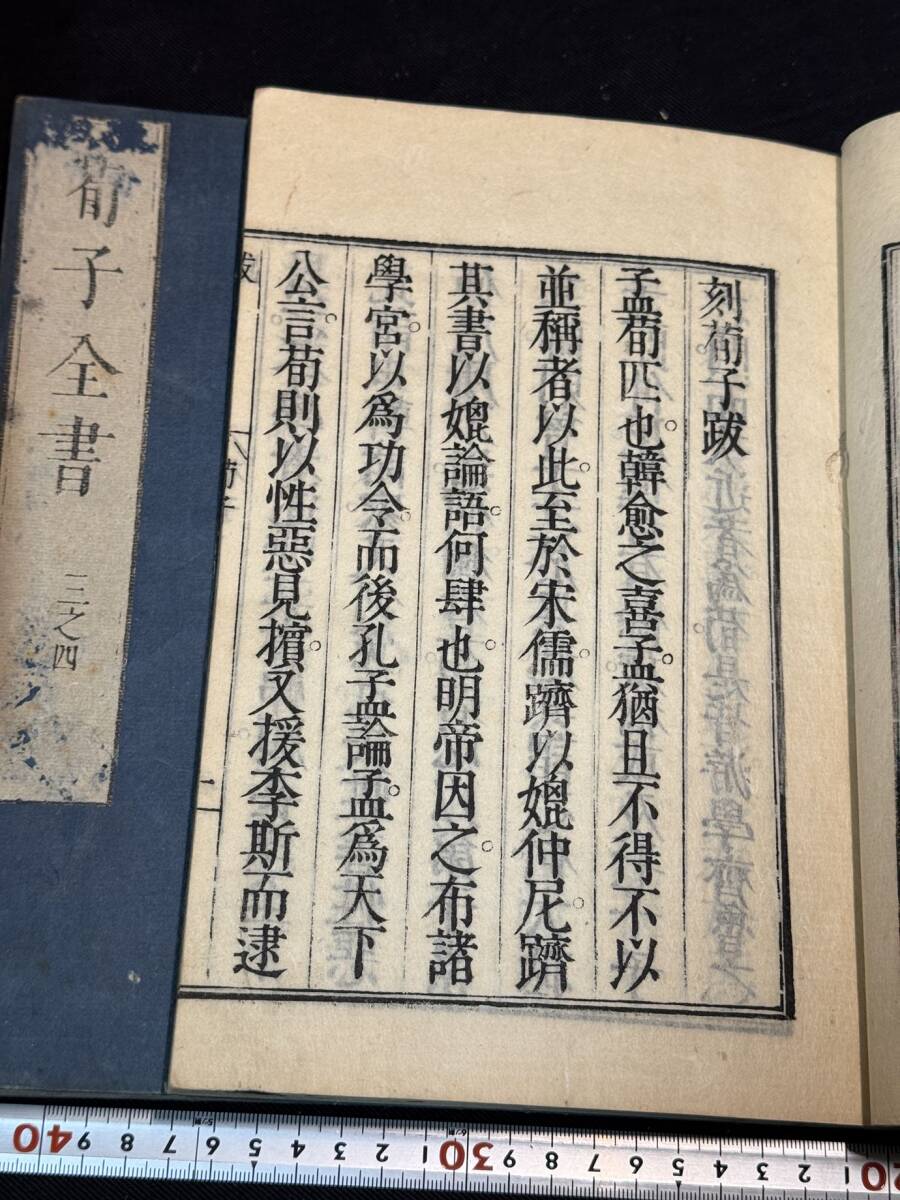 刻荀子跋
孟荀匹也韓愈之喜孟猶且不得不以
並稱者以此至於宋儒躋以媲仲尼躋
其書以媲論語何肆也明帝因之布諸
學宮以爲功令而後孔孟論孟爲天下
公言荀則以性惡見擯又援李斯而逮
跋
荀子
一
荀子全書
三之四
40 9 8 7 6 5 4 3 2 1 30 9 8 7 6 5 4 3 2 1 20